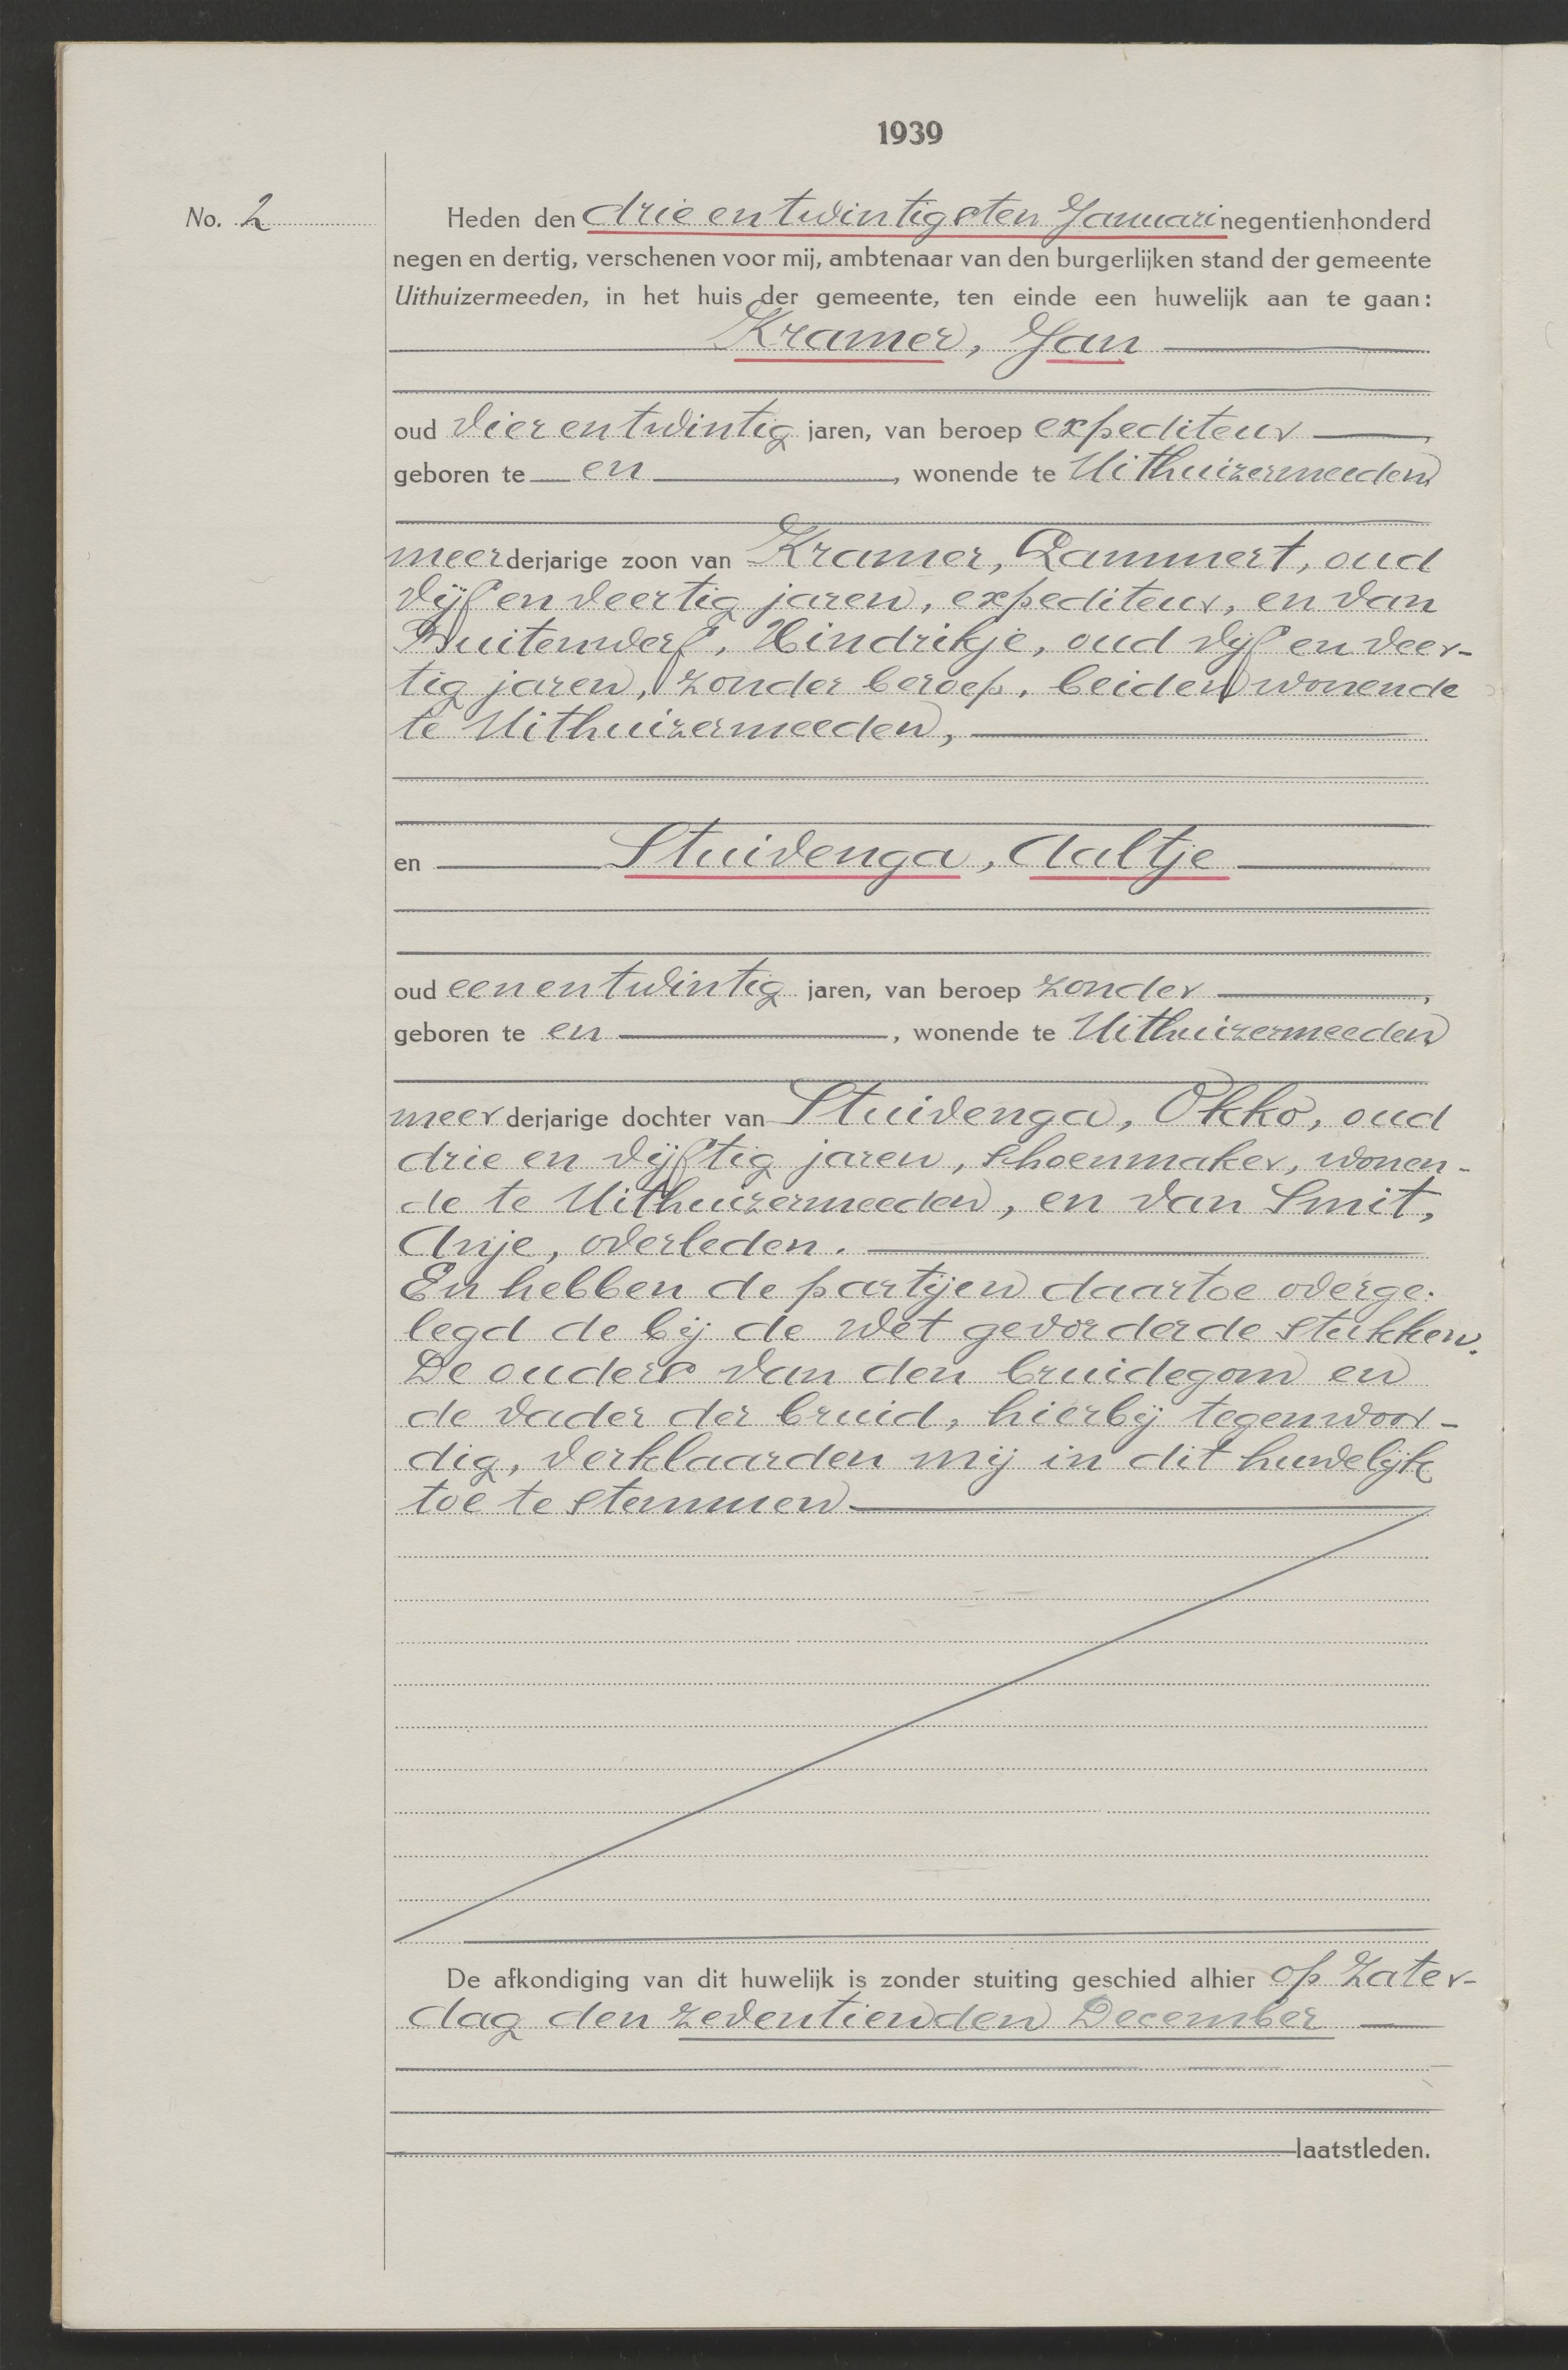 1939
No. 2
Heden den drie en twintigsten Januari negentienhonderd
negen en dertig, verschenen voor mij, ambtenaar van den burgerlijken stand der gemeente
Uithuizermeeden, in het huis der gemeente, ten einde een huwelijk aan te gaan:
Kramer, Jan
oud vier en twintig jaren, van beroep expediteur
geboren te en , wonende te Uithuizermeeden
meerderjarige zoon van Kramer, Lammert, oud
vijf en veertig jaren, expediteur, en van
Buitenwerf, Hindrikje, oud vijf en veer-
tig jaren, zonder beroep, beiden wonende
te Uithuizermeeden,
en Stuivenga, Aaltje
oud een en twintig jaren, van beroep zonder ,
geboren te en , wonende te Uithuizermeeden
meerderjarige dochter van Stuivenga, Okko, oud
drie en vijftig jaren, schoenmaker, wonen-
de te Uithuizermeeden, en van Smit,
Anje, overleden.
En hebben de partijen daartoe overge-
legd de bij de wet gevorderde stukken.
De ouders van den bruidegom en
de vader der bruid, hierbij tegenwoor-
dig, verklaarden mij in dit huwelijk
toe te stemmen
De afkondiging van dit huwelijk is zonder stuiting geschied alhier op Zater-
dag den zeventienden December
laatstleden.